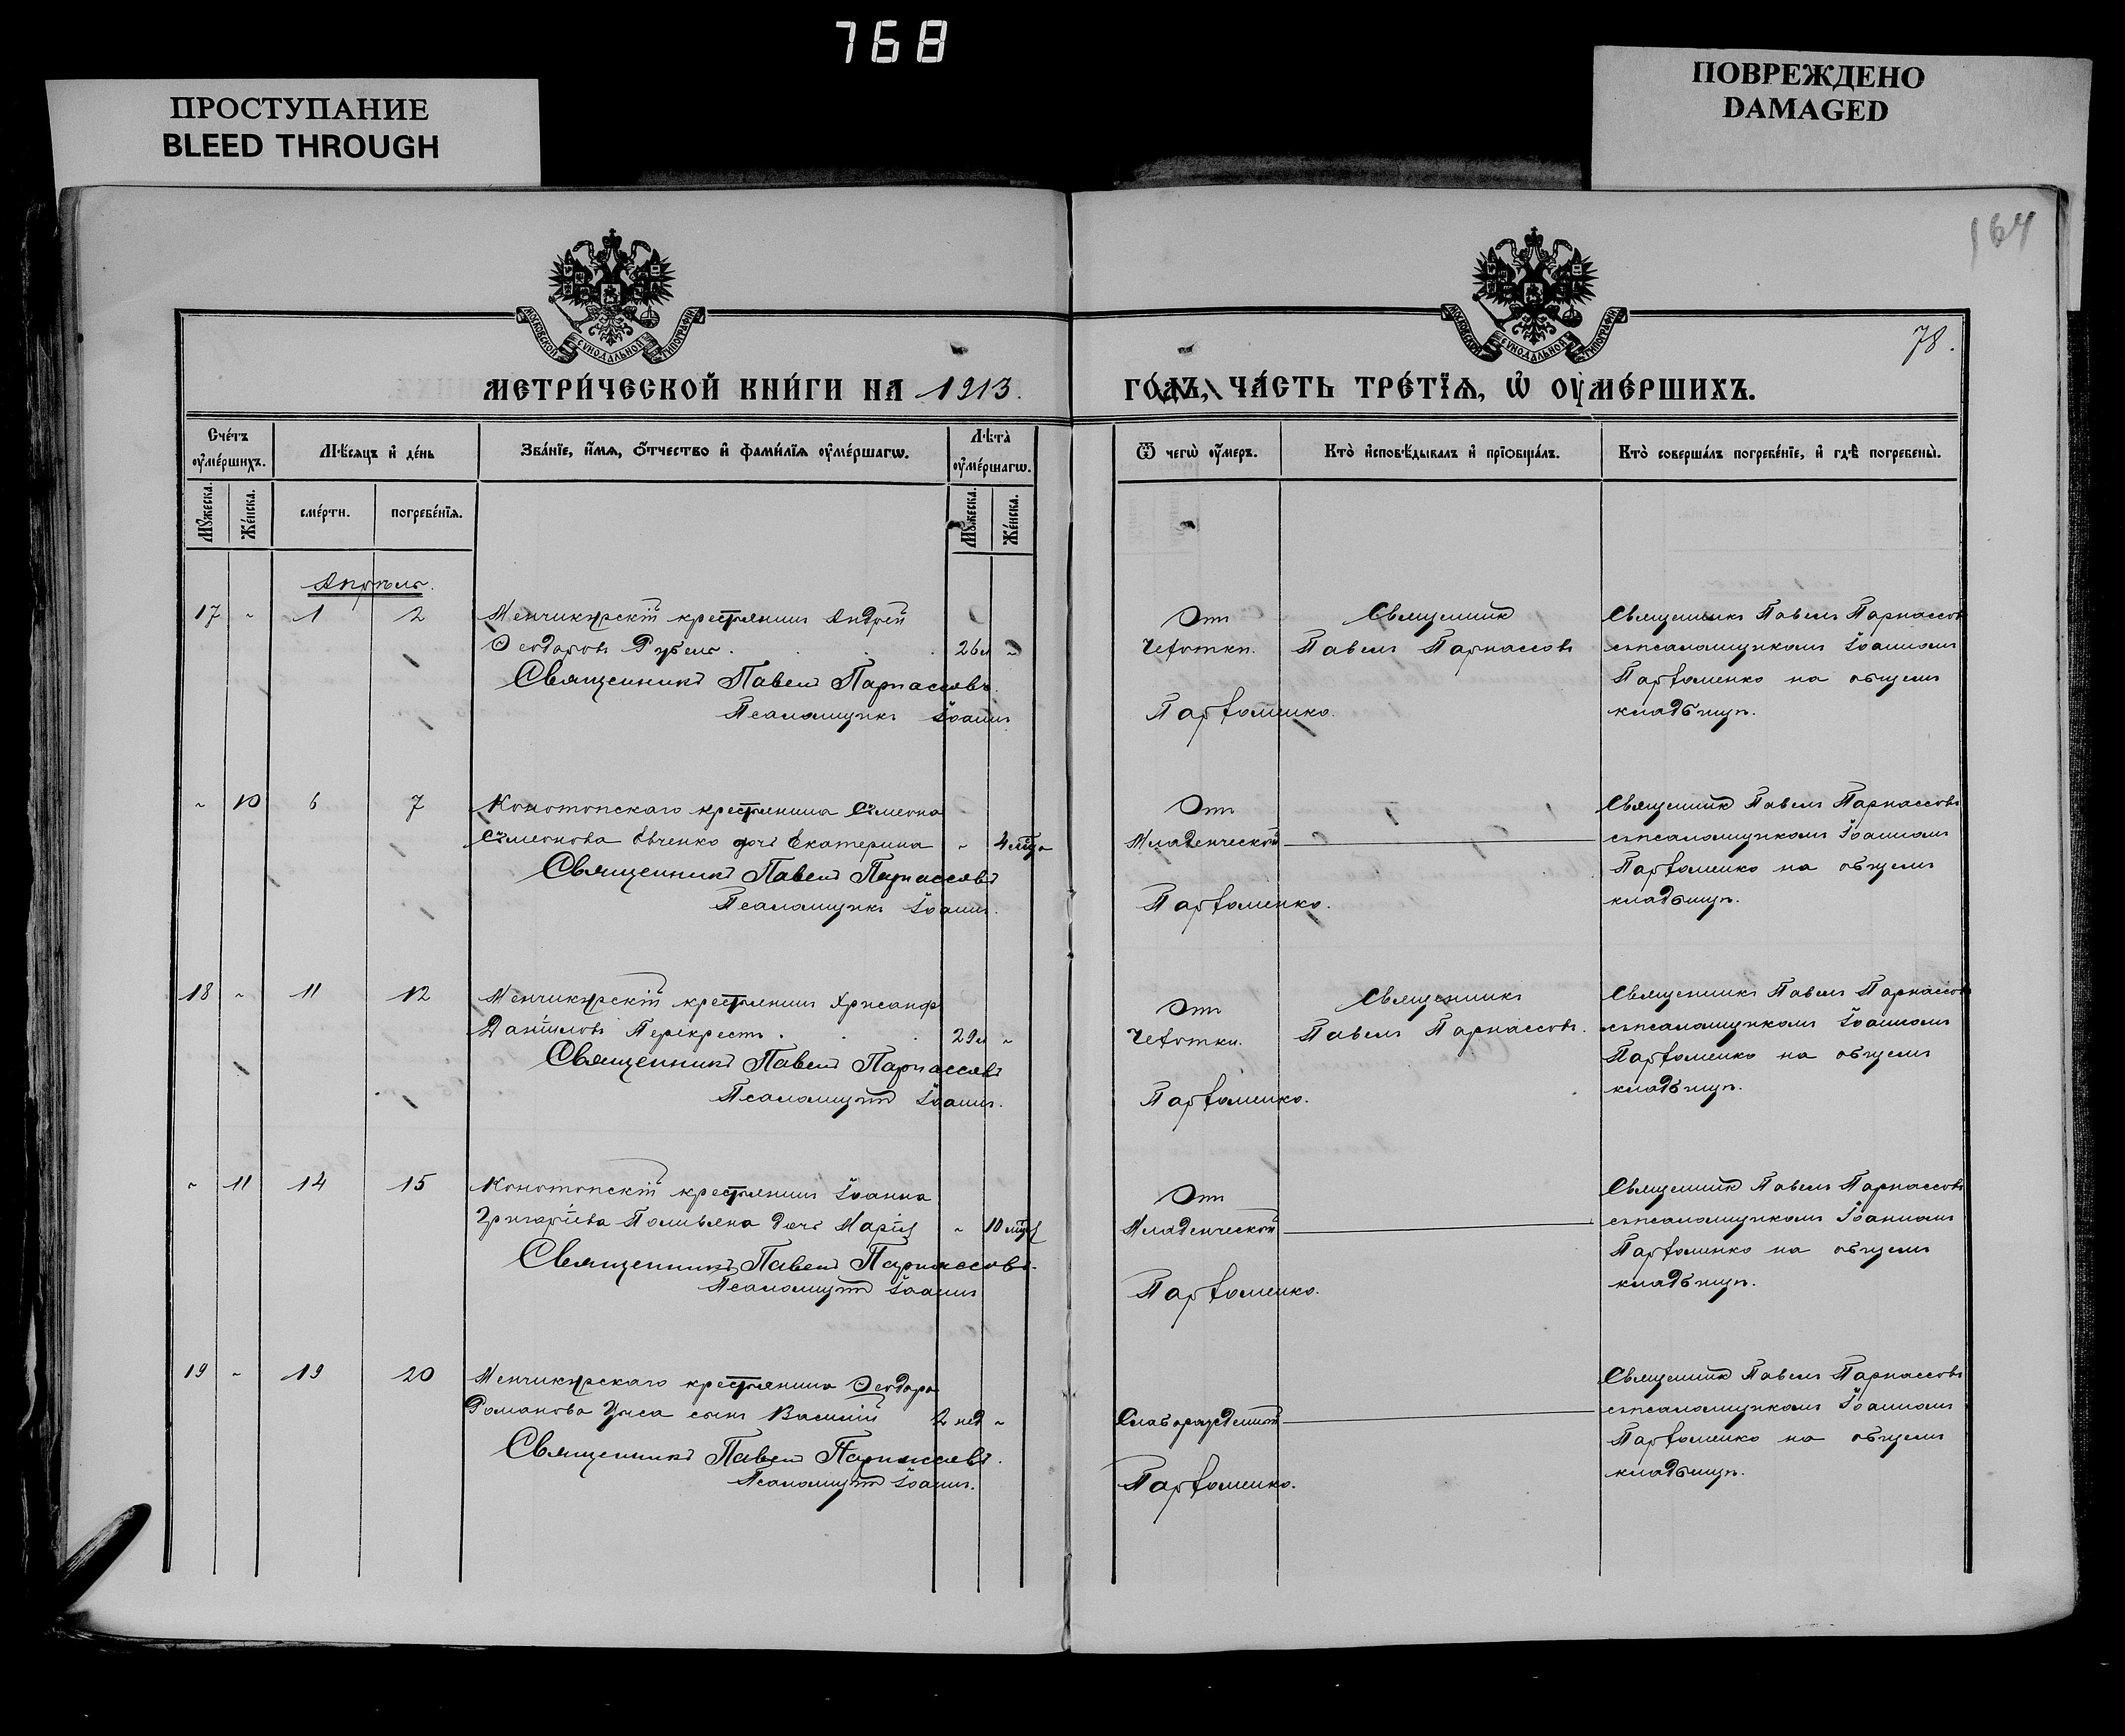 768
ПРОСТУПАНИЕ
BLEED THROUGH
ПОВРЕЖДЕНО
DAMAGED
164
МОСКОВСКОЙ СѴНОДАЛЬНОЙ ТИПОГРАФІИ
МОСКОВСКОЙ СѴНОДАЛЬНОЙ ТИПОГРАФІИ
78.
МЕТРИ́ЧЕСКОЙ КНИ́ГИ НА 1913. ГО́ДЪ, ЧА́СТЬ ТРЕ́ТЇѦ, Ѡ҆ ОУ҆МЕ́РШИХЪ.
Сче́тъ оу҆ме́ршихъ.
Мѣ́сяцъ и҆ де́нь
Зва́нїе, и҆́мѧ, ѻ҆́тчество и҆ фами́лїѧ оу҆ме́ршагѡ.
Лѣта̀ оу҆ме́ршагѡ.
Ѿ чегѡ̀ оу҆́меръ.
Кто̀ и҆сповѣ́дывалъ и҆ прїѡбща́лъ.
Кто̀ соверша́лъ погребе́нїе, и҆ гдѣ̀ погребены̀.
Мꙋ́жеска.
Же́нска.
сме́рти.
погребе́нїѧ.
Мꙋ́жеска.
Же́нска.
Апрѣль.
17 ~ 1 2 Менчикурскій крестьянинъ Андрей
Ѳеодоровъ Рубель. 26 л ~
Священникъ Павелъ Парнассовъ.
Псаломщикъ Іоаннъ
Отъ
Чехотки.
Парфоменко.
Священникъ
Павелъ Парнассовъ
Священникъ Павелъ Парнассовъ
съ псаломщикомъ Іоанномъ
Парфоменко на общемъ
кладбищѣ.
~ 10 6 7 Конотопскаго крестьянина Сѵмеона
Сѵмеонова Евченко дочь Екатерина ~ 4 мѣца
Священникъ Павелъ Парнассовъ
Псаломщикъ Іоаннъ.
Отъ
Младенческой
Парфоменко.
Священникъ Павелъ Парнассовъ
съ псаломщикомъ Іоанномъ
Парфоменко на общемъ
кладбищѣ.
18 ~ 11 12 Менчикурскій крестьянинъ Хрисанфъ
Даніиловъ Перекрестъ. 29 л ~
Священникъ Павелъ Парнассовъ
Псаломщикъ Іоаннъ.
Отъ
Чехотки.
Парфоменко.
Священникъ
Павелъ Парнассовъ.
Священникъ Павелъ Парнассовъ
съ псаломщикомъ Іоанномъ
Парфоменко на общемъ
кладбищѣ.
~ 11 14 15 Конотопскій крестьянинъ Іоанна
Григоріева дочь Марія ~ 10 мѣц
Священникъ Павелъ Парнассовъ.
Псаломщикъ Іоаннъ
Отъ
Младенческой
Парфоменко.
Священникъ Павелъ Парнассовъ
съ псаломщикомъ Іоанномъ
Парфоменко на общемъ
кладбищѣ.
19 ~ 19 20 Менчикурскаго крестьянина Ѳеодора
Романова сынъ Василій 2 нед ~
Священникъ Павелъ Парнассовъ.
Псаломщикъ Іоаннъ.
Парфоменко.
Священникъ Павелъ Парнассовъ
съ псаломщикомъ Іоанномъ
Парфоменко на общемъ
кладбищѣ.